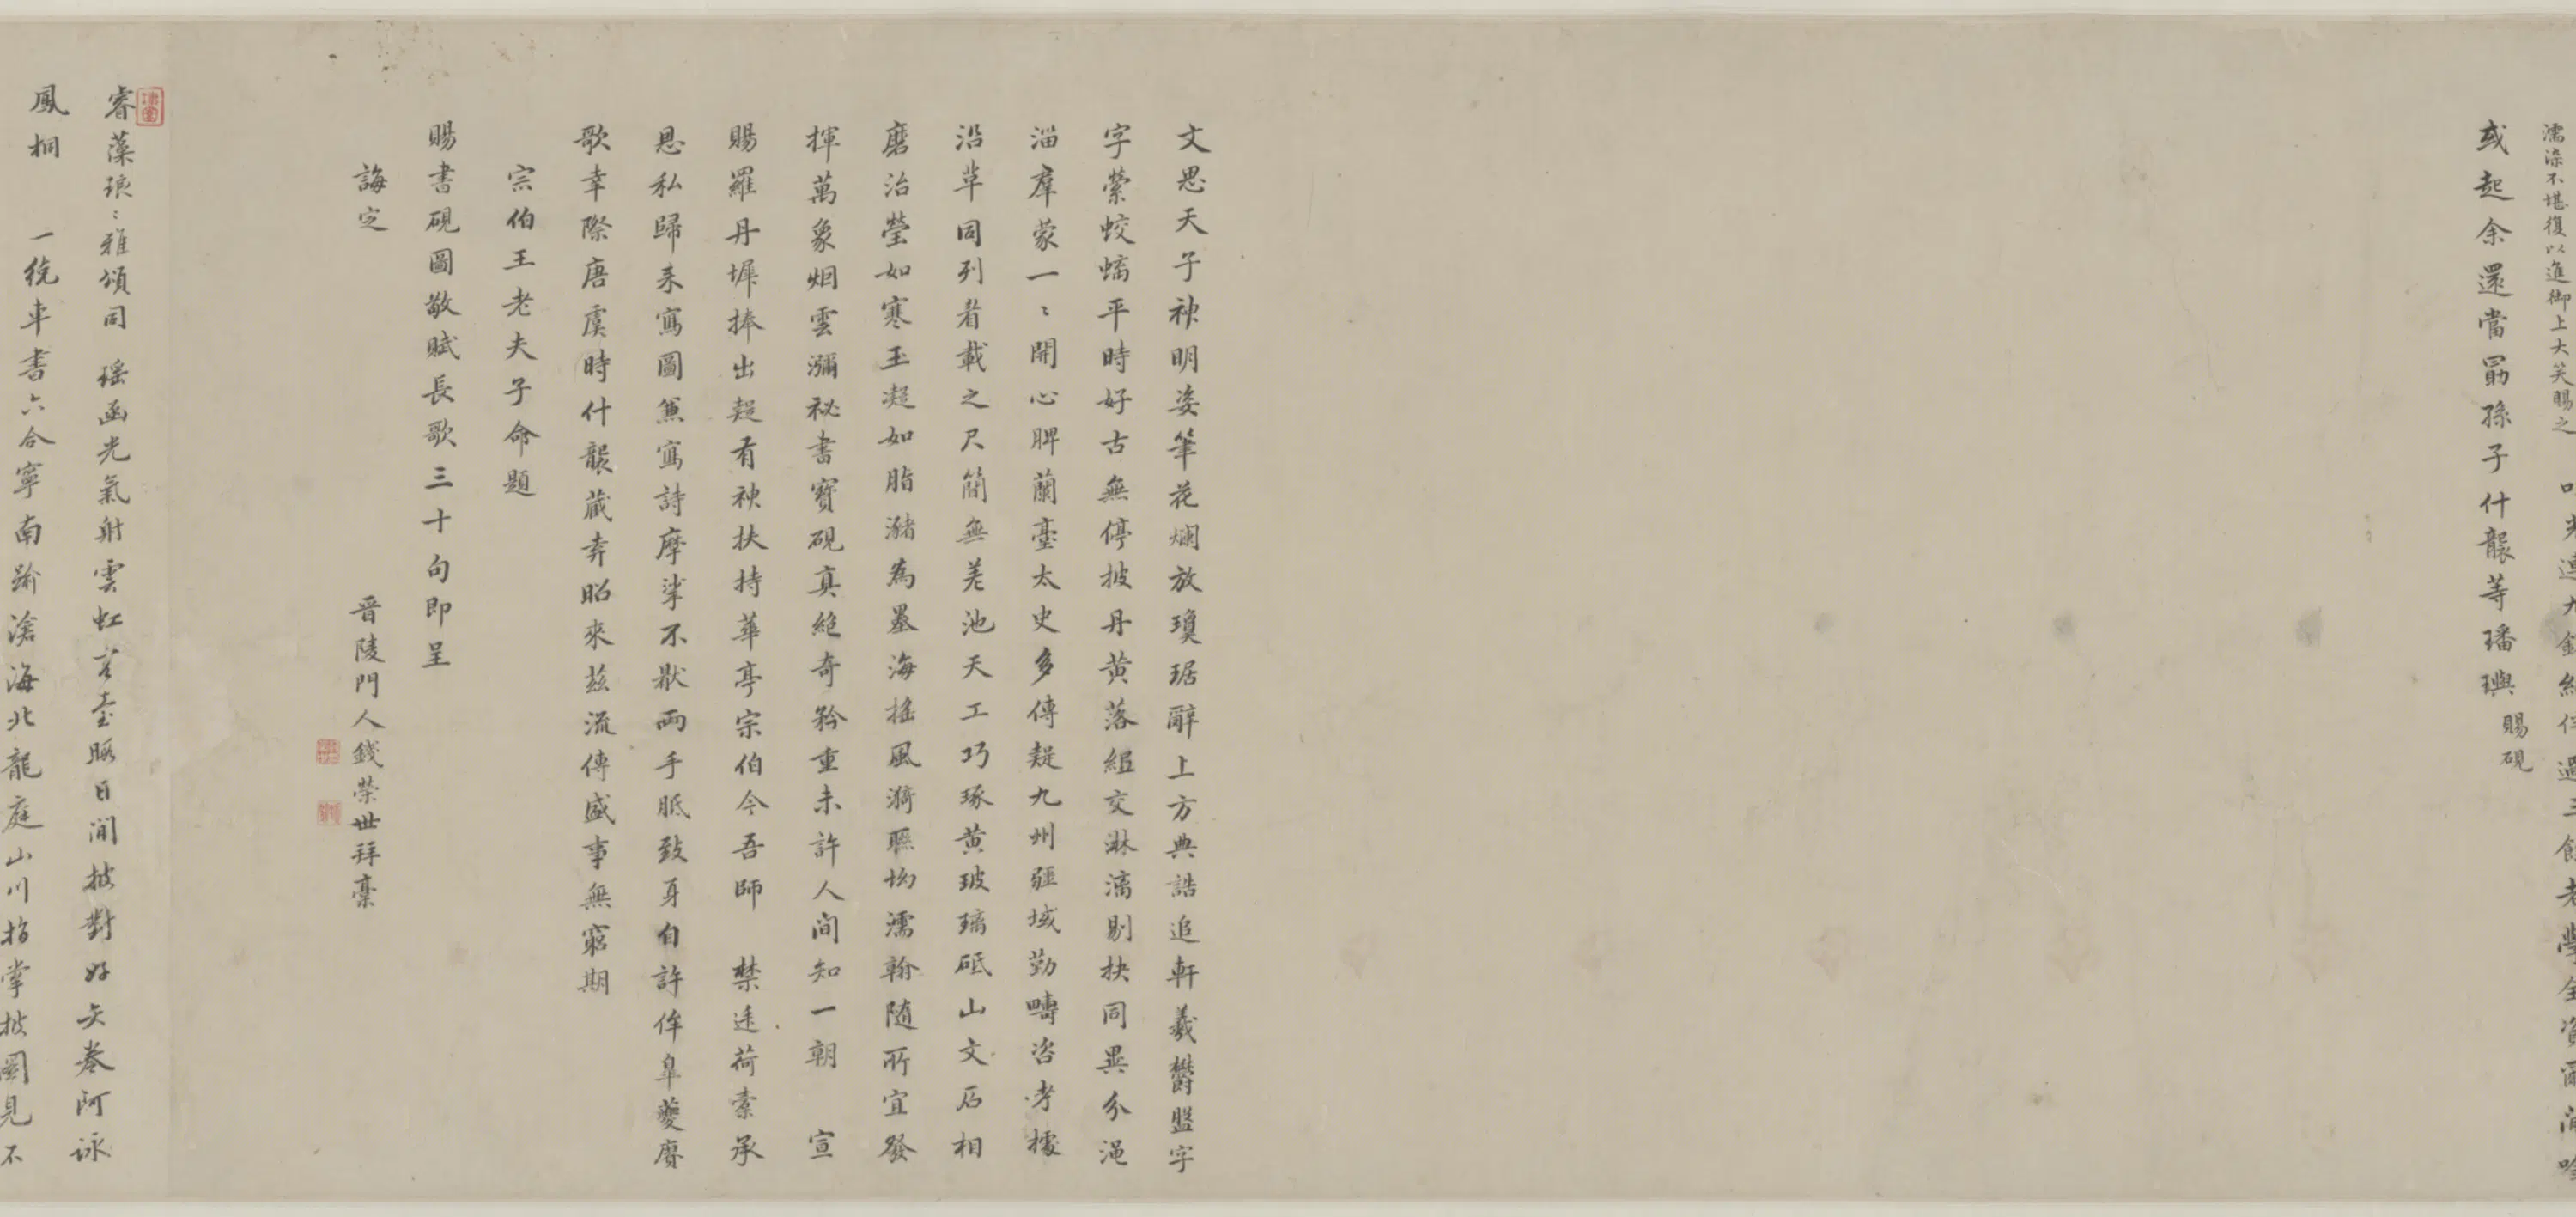 濡染不堪復以進御上大笑賜之
或起余還當勗孫子什襲等璠璵 賜硯
文思天子神明姿筆花爛放瓊琚辭上方典誥追軒羲欝盤字
字縈蛟螭平時好古無停披丹黄落紙交淋漓剔抉同異分澠
淄羣蒙一〻開心脾蘭臺太史多傳疑九州疆域勤疇咨考據
沿革同列眉載之尺簡無差池天工巧琢黄玻璃砥山文石相
磨治瑩如寒玉凝如脂瀦為墨海搖風漪硯坳濡翰隨所宜發
揮萬象烟雲瀰祕書寶硯真絶奇矜重未許人間知一朝 宣
賜羅丹墀捧出趨有神扶持華亭宗伯今吾師 禁近荷橐承
恩私歸来寫圖兼寫詩摩挲不厭兩手胝致身自許侔皐夔賡
歌幸際唐虞時什襲藏弆昭來茲流傳盛事無窮期
宗伯王老夫子命題
賜書硯圖敬賦長歌三十句即呈
誨定
晋陵門人錢榮世拜藁
睿藻琅〻雅頌同 瑶函光氣射雲虹 臺 日閒披對好矢卷阿詠
鳳桐 一統車書六合寧南踰滄海北龍庭山川指掌披圖見不